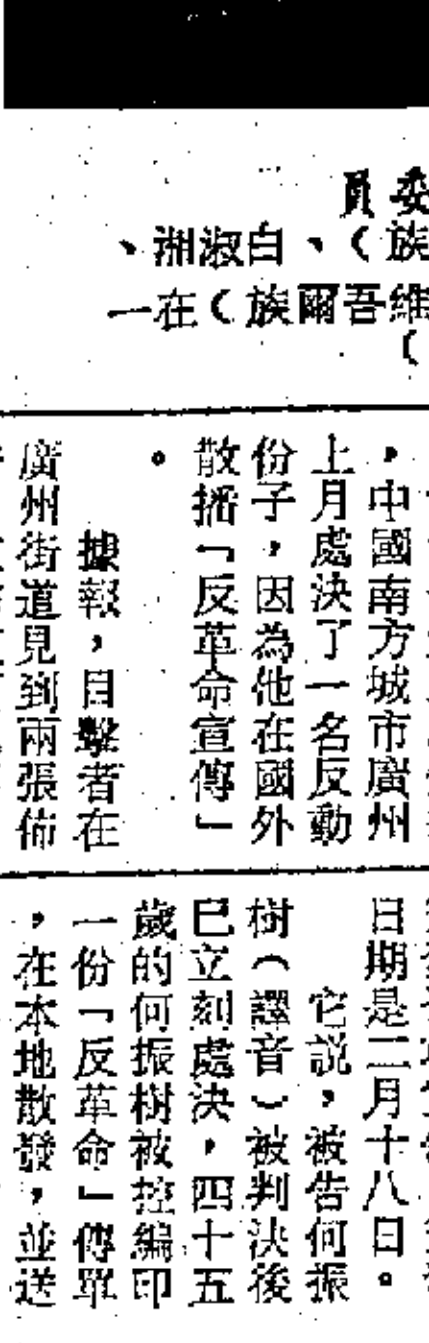 委員
族）、白淑洲、
維吾爾族）在一
（
，中國南方城市廣州
上月處決了一名反動
份子，因為他在國外
散播「反革命宣傳」
。
據報，目擊者在
廣州街道見到兩張佈
日期是二月十八日。
它説，被告何振
樹（譯音）被判決後
已立刻處決，四十五
歲的何振樹被控編印
一份「反革命」傳單
，在本地散發，並送